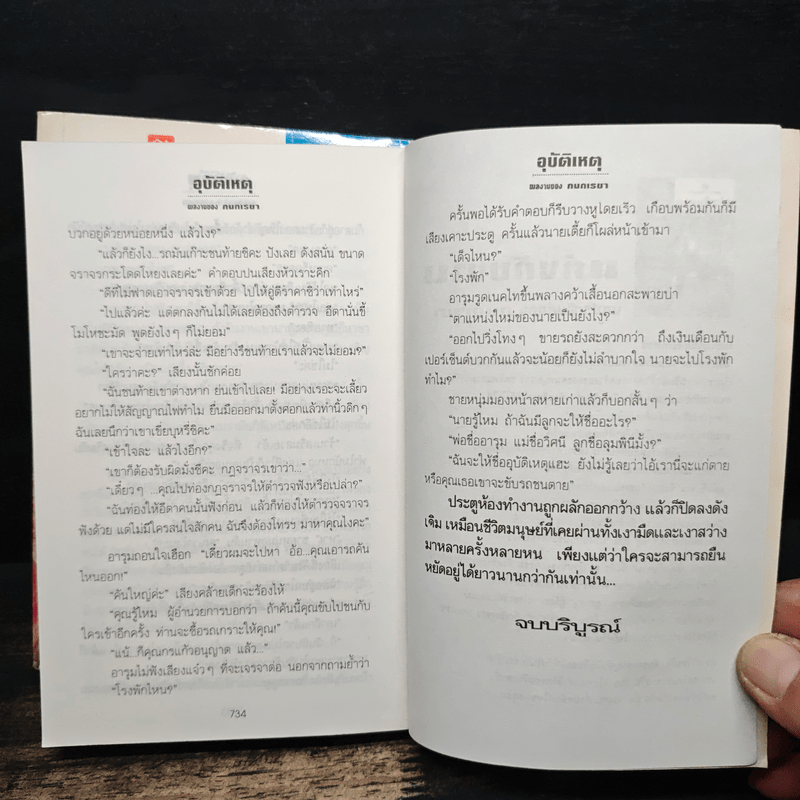 อุบัติเหตุ
ผลงานของ กนกเรขา
บวกอยู่ด้วยหน่อยหนึ่ง แล้วไง?"
"แล้วก็ยังไง...รถมันเก๊าะชนท้ายซิคะ ปังเลย ดังสนั่น ขนาด
จราจรกระโดดโหยงเลยค่ะ" คำตอบปนเสียงหัวเราะคิก
"ดีที่ไม่ฟาดเอาจราจรเข้าด้วย ไปให้อู่ตีราคาซิว่าเท่าไหร่"
"ไปแล้วค่ะ แต่ตกลงกันไม่ได้เลยต้องถึงตำรวจ อีตานั่นขี้
โมโหชะมัด พูดยังไงๆ ก็ไม่ยอม"
"เขาจะจ่ายเท่าไหร่ล่ะ มีอย่างรึชนท้ายเราแล้วจะไม่ยอม?"
"ใครว่าคะ?" เสียงนั้นชักค่อย
"ฉันชนท้ายเขาต่างหาก ย่นเข้าไปเลย! มีอย่างเรอะจะเลี้ยว
อยากไม่ให้สัญญาณไฟทำไม ยื่นมือออกมาตั้งศอกแล้วทำนิ้วดิกๆ
ฉันเลยนึกว่าเขาเขี่ยบุหรี่ซิคะ"
"เข้าใจละ แล้วไงอีก?"
"เขาก็ต้องรับผิดมั่งซีคะ กฎจราจรเขาว่า..."
"เดี๋ยวๆ ...คุณไปท่องกฎจราจรให้ตำรวจฟังหรือเปล่า?"
"ฉันท่องให้อีตาคนนั้นฟังก่อน แล้วก็ท่องให้ตำรวจจราจร
ฟังด้วย แต่ไม่มีใครสนใจสักคน ฉันจึงต้องโทรฯ มาหาคุณไงคะ"
อารุมถอนใจเฮือก "เดี๋ยวผมจะไปหา อ้อ...คุณเอารถคัน
ไหนออก!"
"คันใหญ่ค่ะ" เสียงคล้ายเด็กจะร้องไห้
"คุณรู้ไหม ผู้อำนวยการบอกว่า ถ้าคันนี้คุณขับไปชนกับ
ใครเข้าอีกครั้ง ท่านจะซื้อรถเกราะให้คุณ!"
"แน้ ก็คุณกรแก้วอนุญาต แล้ว..."
อารุมไม่ฟังเสียงแจ๋วๆ ที่จะเจรจาต่อ นอกจากถามย้ำว่า
"โรงพักไหน?"
734
อุบัติเหตุ
ผลงานของ กนกเรขา
ครั้นพอได้รับคำตอบก็รีบวางหูโดยเร็ว เกือบพร้อมกันก็มี
เสียงเคาะประตู ครั้นแล้วนายเตี้ยก็โผล่หน้าเข้ามา
"เด็จไหน?"
"โรงพัก"
อารุมรูดเนคไทขึ้นพลางคว้าเสื้อนอกสะพายบ่า
"ตาแหน่งใหม่ของนายเป็นยังไง?"
"ออกไปวิ่งโทงๆ ขายรถยังสะดวกกว่า ถึงเงินเดือนกับ
เปอร์เซ็นต์บวกกันแล้วจะน้อยก็ยังไม่ลำบากใจ นายจะไปโรงพัก
ทำไม?"
ชายหนุ่มมองหน้าสหายเก่าแล้วก็บอกสั้นๆ ว่า
"นายรู้ไหม ถ้าฉันมีลูกจะให้ชื่ออะไร?"
"พ่อชื่ออารุม แม่ชื่อวิศนี ลูกชื่อลุมพินีมั้ง?"
"ฉันจะให้ชื่ออุบัติเหตุแฮะ ยังไม่รู้เลยว่าไอ้เรานี่จะแก่ตาย
หรือคุณเธอเขาจะขับรถชนตาย"
ประตูห้องทำงานถูกผลักออกกว้าง แล้วก็ปิดลงดัง
เจิม เหมือนชีวิตมนุษย์ที่เคยผ่านทั้งเงามืดและเงาสว่าง
มาหลายครั้งหลายหน เพียงแต่ว่าใครจะสามารถยืน
หยัดอยู่ได้ยาวนานกว่ากันเท่านั้น...
จบบริบูรณ์